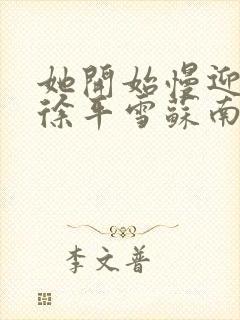 她開始慢迎
徐平雪蘇南
李文普